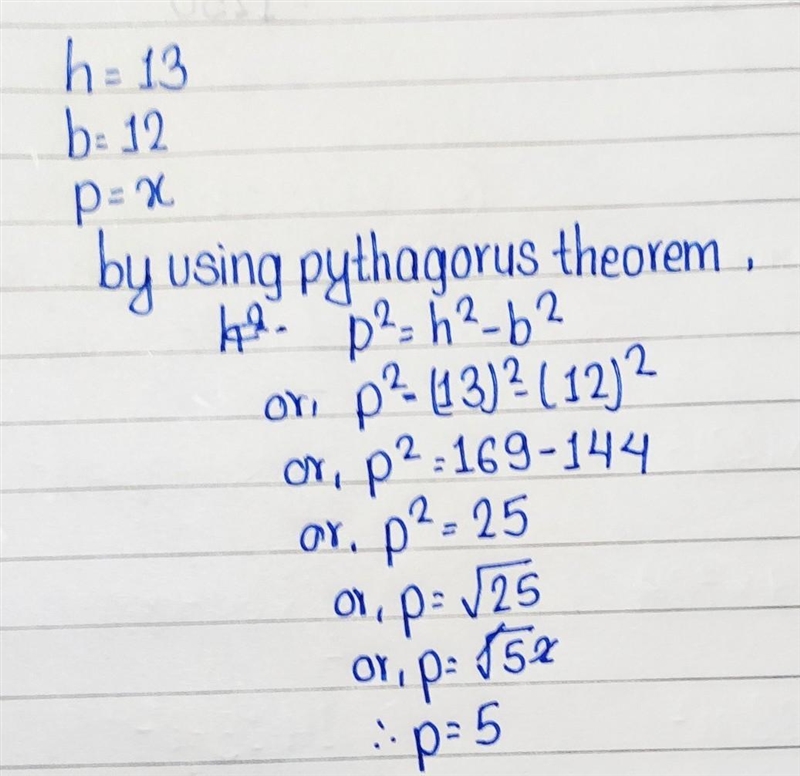 h = 13
b = 12
p = x
by using pythagorus theorem .
p² = h² - b²
or, p² = (13)² - (12)²
or, p² = 169 - 144
or, p² = 25
or, p = √25
or, p = √5x
∴ p = 5